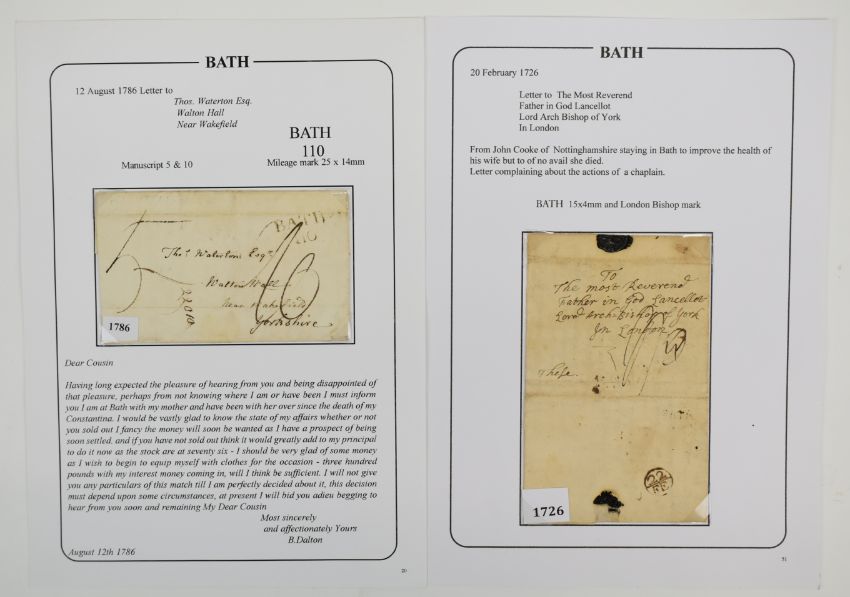 BATH
12 August 1786 Letter to
Thos. Waterton Esq.
Walton Hall
Near Wakefield
BATH
110
Manuscript 5 & 10
Mileage mark 25 x 14mm
BATH
Thos. Waterton Esqr.
Walton Hall
Near Wakefield
Yorkshire
1786
Dear Cousin
Having long expected the pleasure of hearing from you and being disappointed of
that pleasure, perhaps from not knowing where I am or have been I must inform
you I am at Bath with my mother and have been with her over since the death of my
Constantina. I would be vastly glad to know the state of my affairs whether or not
you sold out I fancy the money will soon be wanted as I have a prospect of being
soon settled. and if you have not sold out think it would greatly add to my principal
to do it now as the stock are at seventy six - I should be very glad of some money
as I wish to begin to equip myself with clothes for the occasion - three hundred
pounds with my interest money coming in, will I think be sufficient. I will not give
you any particulars of this match till I am perfectly decided about it, this decision
must depend upon some circumstances, at present I will bid you adieu begging to
hear from you soon and remaining My Dear Cousin
Most sincerely
and affectionately Yours
B.Dalton
August 12th 1786
20
BATH
20 February 1726
Letter to The Most Reverend
Father in God Lancellot
Lord Arch Bishop of York
In London
From John Cooke of Nottinghamshire staying in Bath to improve the health of
his wife but to of no avail she died.
Letter complaining about the actions of a chaplain.
BATH 15x4mm and London Bishop mark
To
The most Reverend
Father in God Lancellot
Lord Arch Bishop of York
In London
These
1726